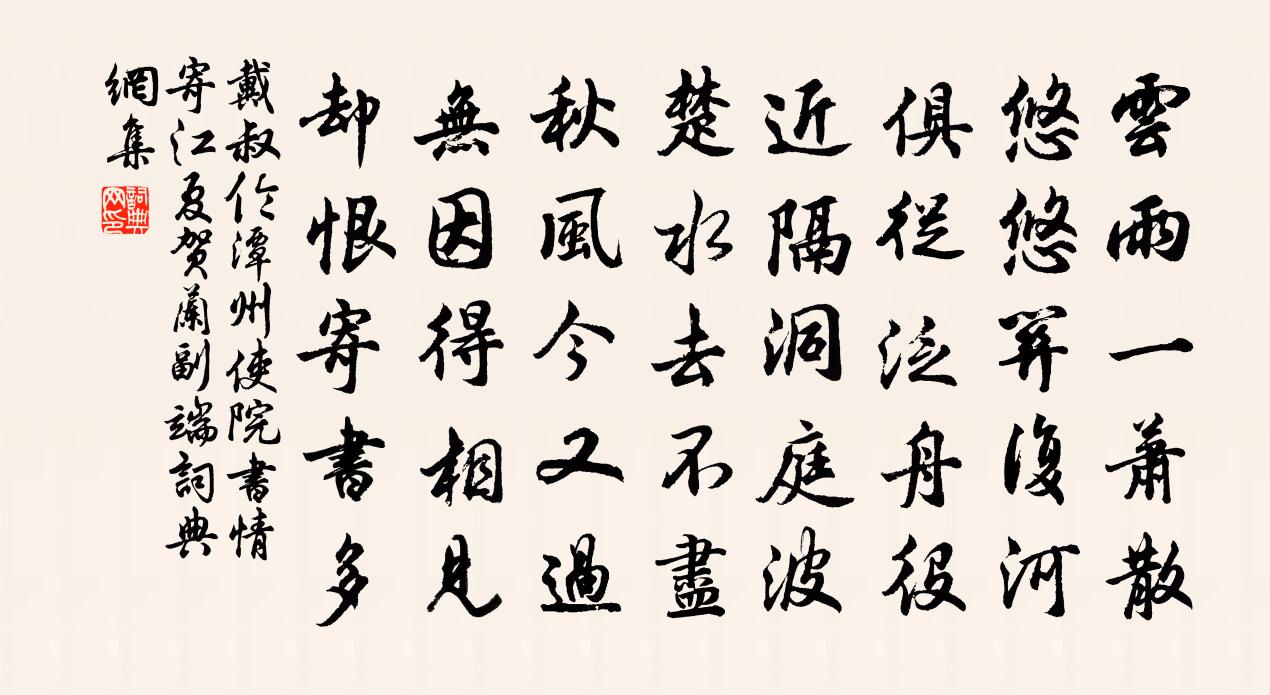 雲雨一蕭散
悠悠關復河
俱從泛舟役
近隔洞庭波
楚水去不盡
秋風今又過
無因得相見
却恨寄書多
戴叔伦潭州使院書情
寄江夏贺蘭副端詞典
網集
詞典
网印